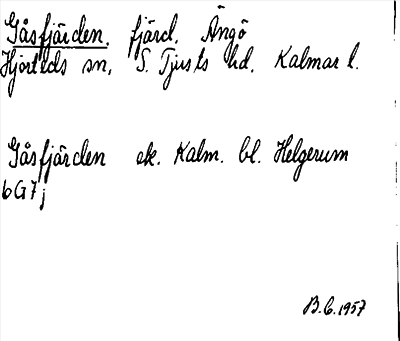 Gåsfjärden, fjärd, Ängö
Hjorteds sn, S. Tjusts hd, Kalmar l.
Gåsfjärden ek. Kalm. bl. Helgerum
6G7j
B.C. 1957